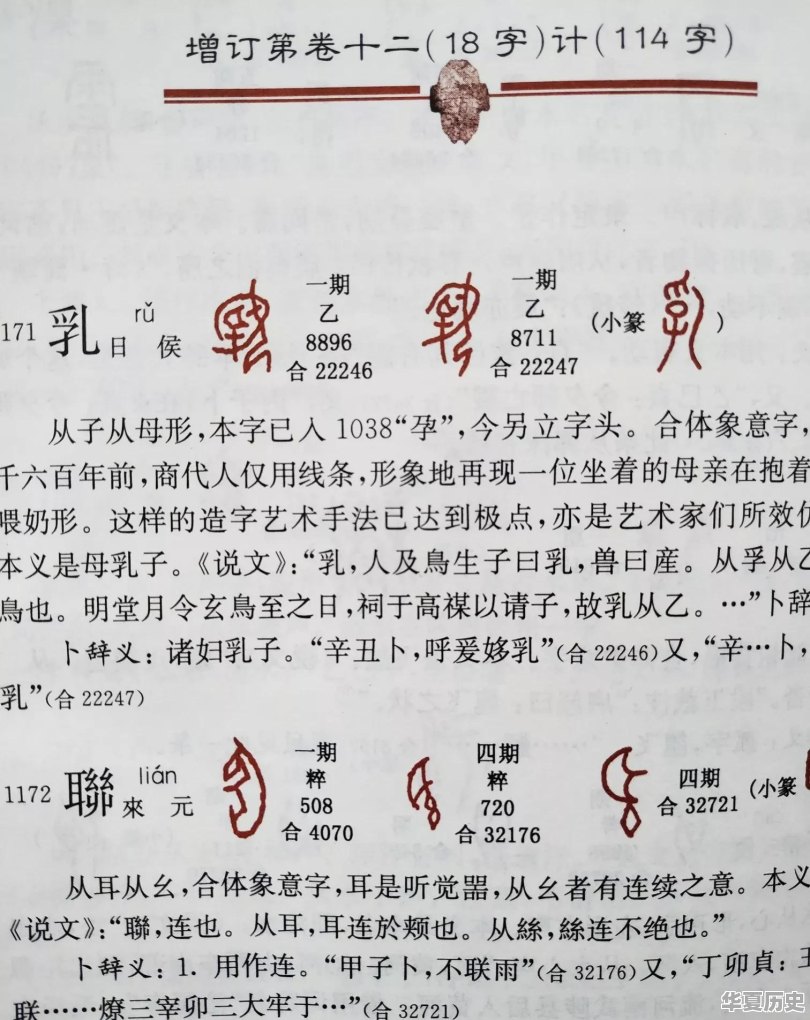 增订第卷十二(18 字)计(114 字)
171 乳 rǔ 日 侯 一期 乙 8896 合 22246 一期 乙 8711 合 22247 (小篆 )
从子从母形,本字已入 1038“孕”,今另立字头。合体象意字,
千六百年前,商代人仅用线条,形象地再现一位坐着的母亲在抱着
喂奶形。这样的造字艺术手法已达到极点,亦是艺术家们所效仿
本义是母乳子。《说文》:“乳,人及鳥生子曰乳,兽曰産。从孚从乙
鳥也。明堂月令玄鳥至之日,祠于高禖以请子,故乳从乙。…”卜辞
卜辞义:诸妇乳子。“辛丑卜,呼爰姼乳”(合 22246)又,“辛…卜,
乳”(合 22247)
1172 聯 lián 來 元 一期 粹 508 合 4070 四期 粹 720 合 32176 四期 合 32721 (小篆
从耳从幺,合体象意字,耳是听觉器,从幺者有连续之意。本义
《说文》:“聯,连也。从耳,耳连於颊也。从絲,絲连不绝也。”
卜辞义:1. 用作连。“甲子卜,不联雨”(合 32176)又,“丁卯貞:王
联……燎三宰卯三大牢于…”(合 32721)
华夏历史